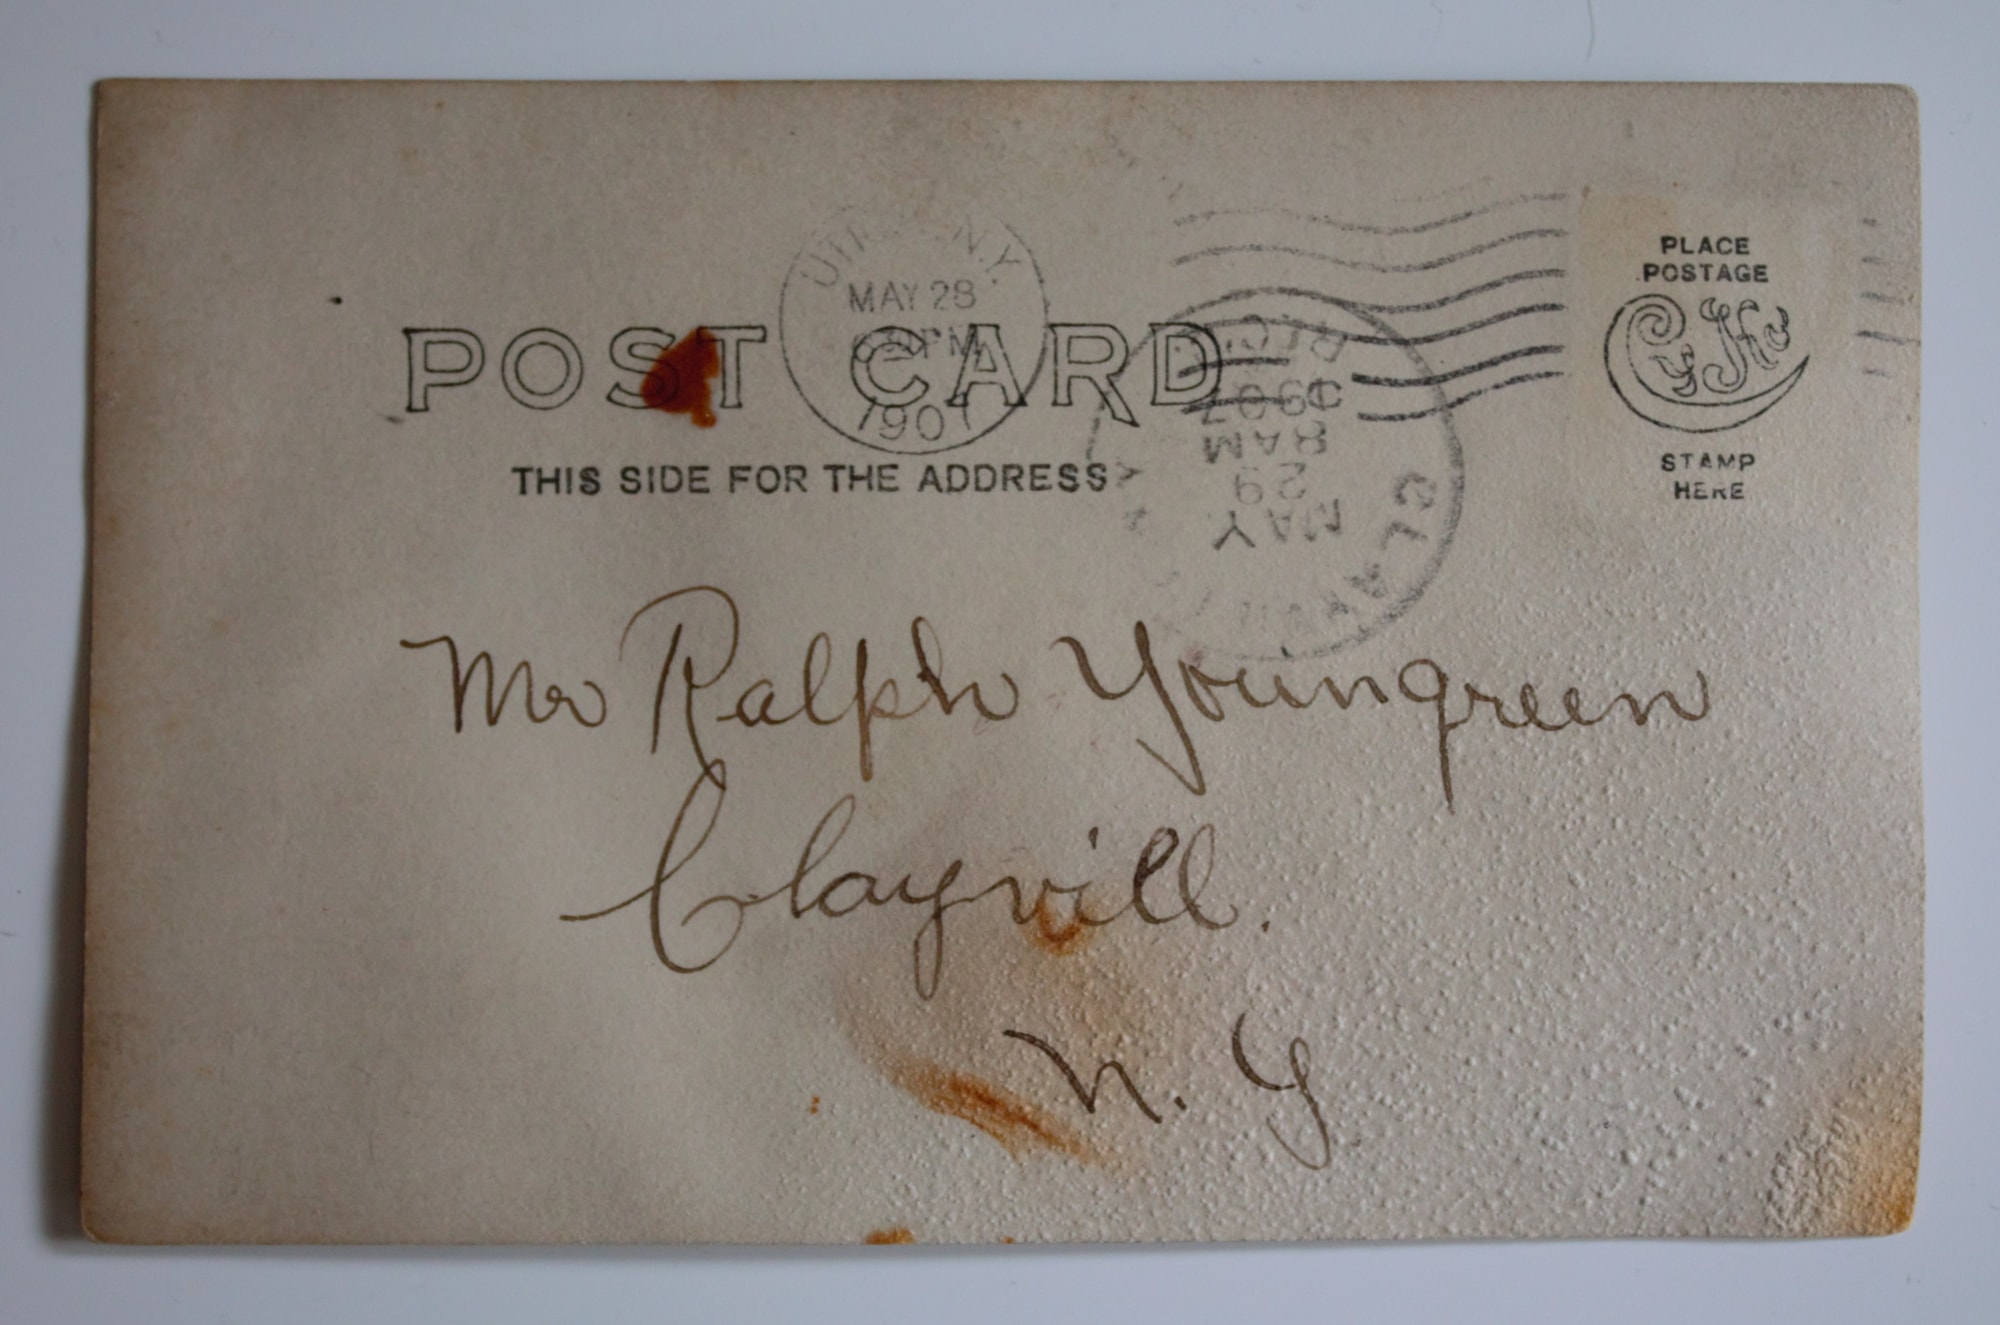 UTICA, N.Y.
MAY 28
PM
1907
PLACE
POSTAGE
CYKO
STAMP
HERE
POST CARD
THIS SIDE FOR THE ADDRESS
CLAYVILLE
N.Y.
MAY
29
8AM
1907
REC'D.
Mr Ralph Youngreen
Clayvill.
N. Y